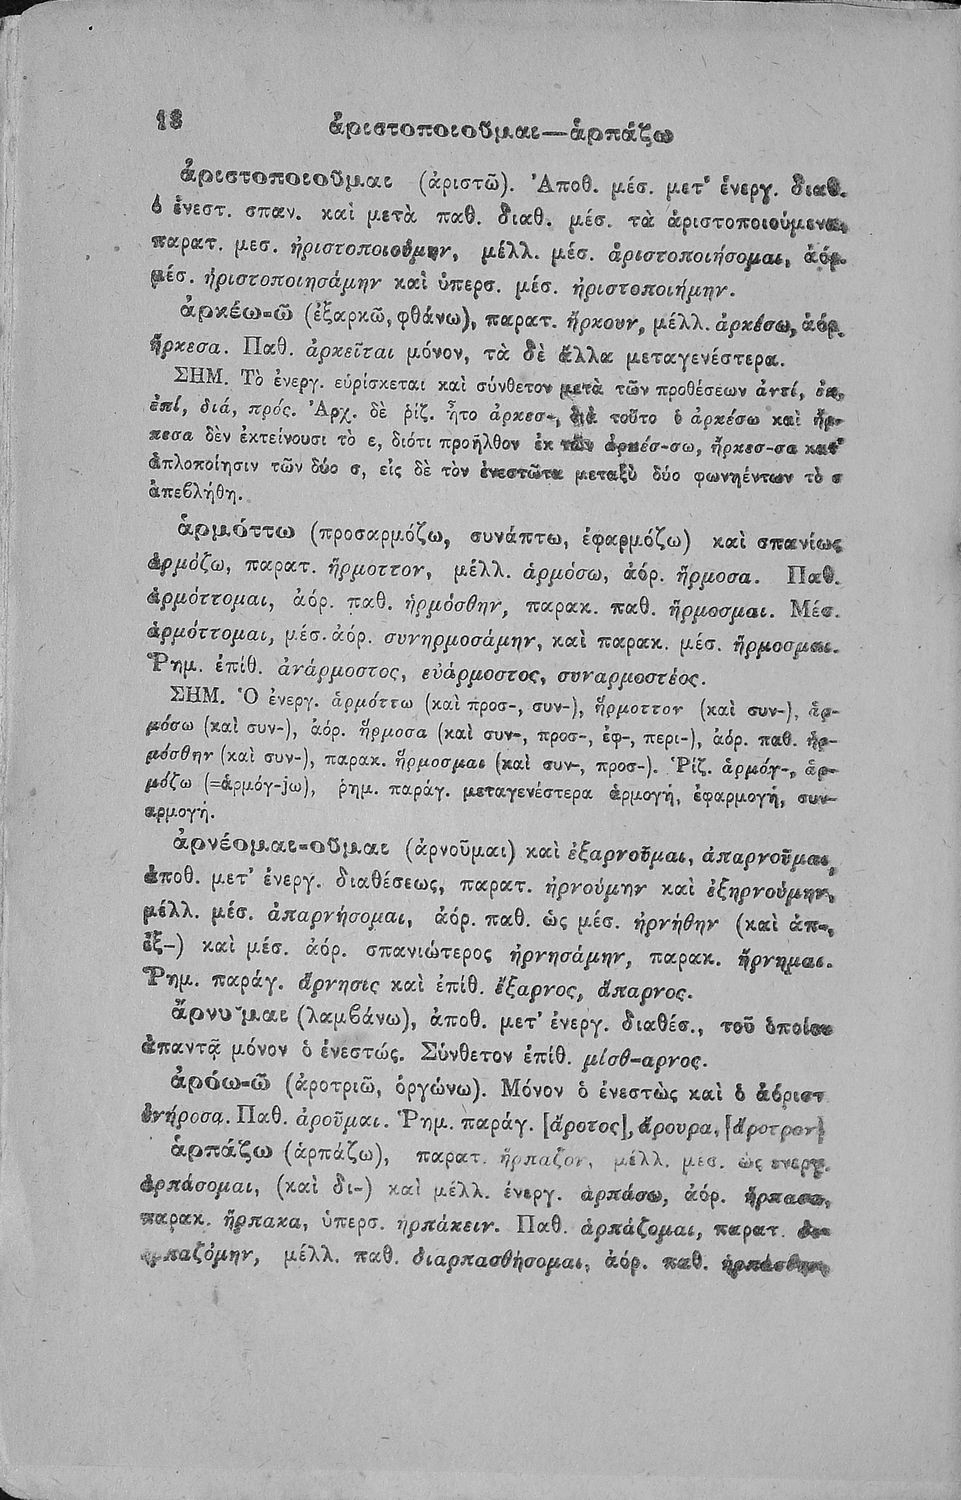 18 ἀριστοποιοῦμαι—ἁρπάζω
ἀριστοποιοῦμαι (ἀριστῶ). Ἀποθ. μέσ. μετ' ἐνεργ. διαθ.
ὁ ἐνεστ. σπαν. καὶ μετὰ παθ. διαθ. μέσ. τὰ ἀριστοποιούμενα,
παρατ. μεσ. ἠριστοποιούμην, μέλλ. μέσ. ἀριστοποιήσομαι, ἀόρ.
μέσ. ἠριστοποιησάμην καὶ ὑπερσ. μέσ. ἠριστοποιήμην.
ἀρκέω-ῶ (ἐξαρκῶ, φθάνω), παρατ. ἤρκουν, μέλλ. ἀρκέσω, ἀόρ.
ἤρκεσα. Παθ. ἀρκεῖται μόνον, τὰ δὲ ἄλλα μεταγενέστερα.
ΣΗΜ. Τὸ ἐνεργ. εὑρίσκεται καὶ σύνθετον μετὰ τῶν προθέσεων ἀντί, ἐκ,
ἐπί, διά, πρός. Ἀρχ. δὲ ῥίζ. ἦτο ἀρκεσ-, διὰ τοῦτο ὁ ἀρκέσω καὶ ἤρ-
κεσα δὲν ἐκτείνουσι τὸ ε, διότι προῆλθον ἐκ τῶν ἀρκέσ-σω, ἤρκεσ-σα κατ'
ἁπλοποίησιν τῶν δύο σ, εἰς δὲ τὸν ἐνεστῶτα μεταξὺ δύο φωνηέντων τὸ σ
ἀπεβλήθη.
ἁρμόττω (προσαρμόζω, συνάπτω, ἐφαρμόζω) καὶ σπανίως
ἁρμόζω, παρατ. ἥρμοττον, μέλλ. ἁρμόσω, ἀόρ. ἥρμοσα. Παθ.
ἁρμόττομαι, ἀόρ. παθ. ἡρμόσθην, παρακ. παθ. ἥρμοσμαι. Μέσ.
ἁρμόττομαι, μέσ. ἀόρ. συνηρμοσάμην, καὶ παρακ. μέσ. ἥρμοσμαι.
Ῥημ. ἐπίθ. ἀνάρμοστος, εὐάρμοστος, συναρμοστέος.
ΣΗΜ. Ὁ ἐνεργ. ἁρμόττω (καὶ προσ-, συν-), ἥρμοττον (καὶ συν-), ἁρ-
μόσω (καὶ συν-), ἀόρ. ἥρμοσα (καὶ συν-, προσ-, ἐφ-, περι-), ἀόρ. παθ. ἡρ-
μόσθην (καὶ συν-), παρακ. ἥρμοσμαι (καὶ συν-, προσ-). Ῥίζ. ἁρμόγ-, ἁρ-
μόζω (=ἁρμόγ-jω), ῥημ. παράγ. μεταγενέστερα ἁρμογή, ἐφαρμογή, συν-
αρμογή.
ἀρνέομαι-οῦμαι (ἀρνοῦμαι) καὶ ἐξαρνοῦμαι, ἀπαρνοῦμαι,
ἀποθ. μετ' ἐνεργ. διαθέσεως, παρατ. ἠρνούμην καὶ ἐξηρνούμην,
μέλλ. μέσ. ἀπαρνήσομαι, ἀόρ. παθ. ὡς μέσ. ἠρνήθην (καὶ ἀπ-,
ἐξ-) καὶ μέσ. ἀόρ. σπανιώτερος ἠρνησάμην, παρακ. ἤρνημαι.
Ῥημ. παράγ. ἄρνησις καὶ ἐπίθ. ἔξαρνος, ἄπαρνος.
ἄρνυμαι (λαμβάνω), ἀποθ. μετ' ἐνεργ. διαθέσ., τοῦ ὁποίου
ἀπαντᾷ μόνον ὁ ἐνεστώς. Σύνθετον ἐπίθ. μίσθ-αρνος.
ἀρόω-ῶ (ἀροτριῶ, ὀργώνω). Μόνον ὁ ἐνεστὼς καὶ ὁ ἀόριστ
ἐνήροσα. Παθ. ἀροῦμαι. Ῥημ. παράγ. [ἄροτος], ἄρουρα, [ἄροτρον]
ἁρπάζω (ἁρπάζω), παρατ. ἥρπαζον, μέλλ. μεσ. ὡς ενεργ.
ἁρπάσομαι, (καὶ δι-) καὶ μέλλ. ἐνεργ. ἁρπάσω, ἀόρ. ἥρπασα,
παρακ. ἥρπακα, ὑπερσ. ἡρπάκειν. Παθ. ἁρπάζομαι, παρατ. δι-
ηρπαζόμην, μέλλ. παθ. διαρπασθήσομαι, ἀόρ. παθ. ἡρπάσθην,